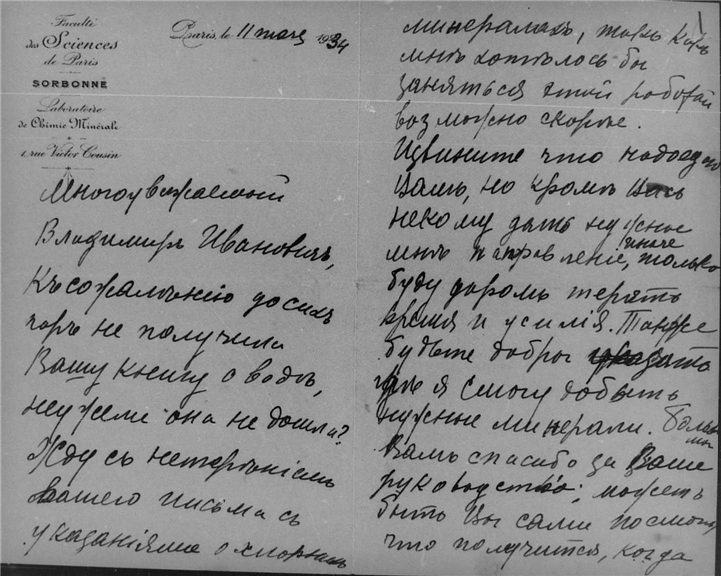 Faculté
des Sciences
de Paris
SORBONNE
Laboratoire
de Chimie Minérale
1, rue Victor Cousin
Paris, le 11 mars 1934
Многоуважаемый
Владимиръ Ивановичъ,
Къ сожалѣнію до сихъ
поръ не получила
Вашу книгу о водѣ,
неужели она не дошла?
Жду съ нетерпѣніемъ
Вашего письма съ
указаніями о спорныхъ
минералахъ, такъ какъ
мнѣ хотѣлось бы
заняться этой работой
возможно скорѣе.
Извините что надоедаю
Вамъ, но кромѣ Васъ
некому дать нужное
мнѣ направленіе, иначе только
буду даромъ терять
время и усилія. Также
будьте добры указать
гдѣ я смогу добыть
нужные минералы. Большое
Вамъ спасибо за Ваше
руководство; можетъ
быть Вы сами посмотрите
что получится, когда